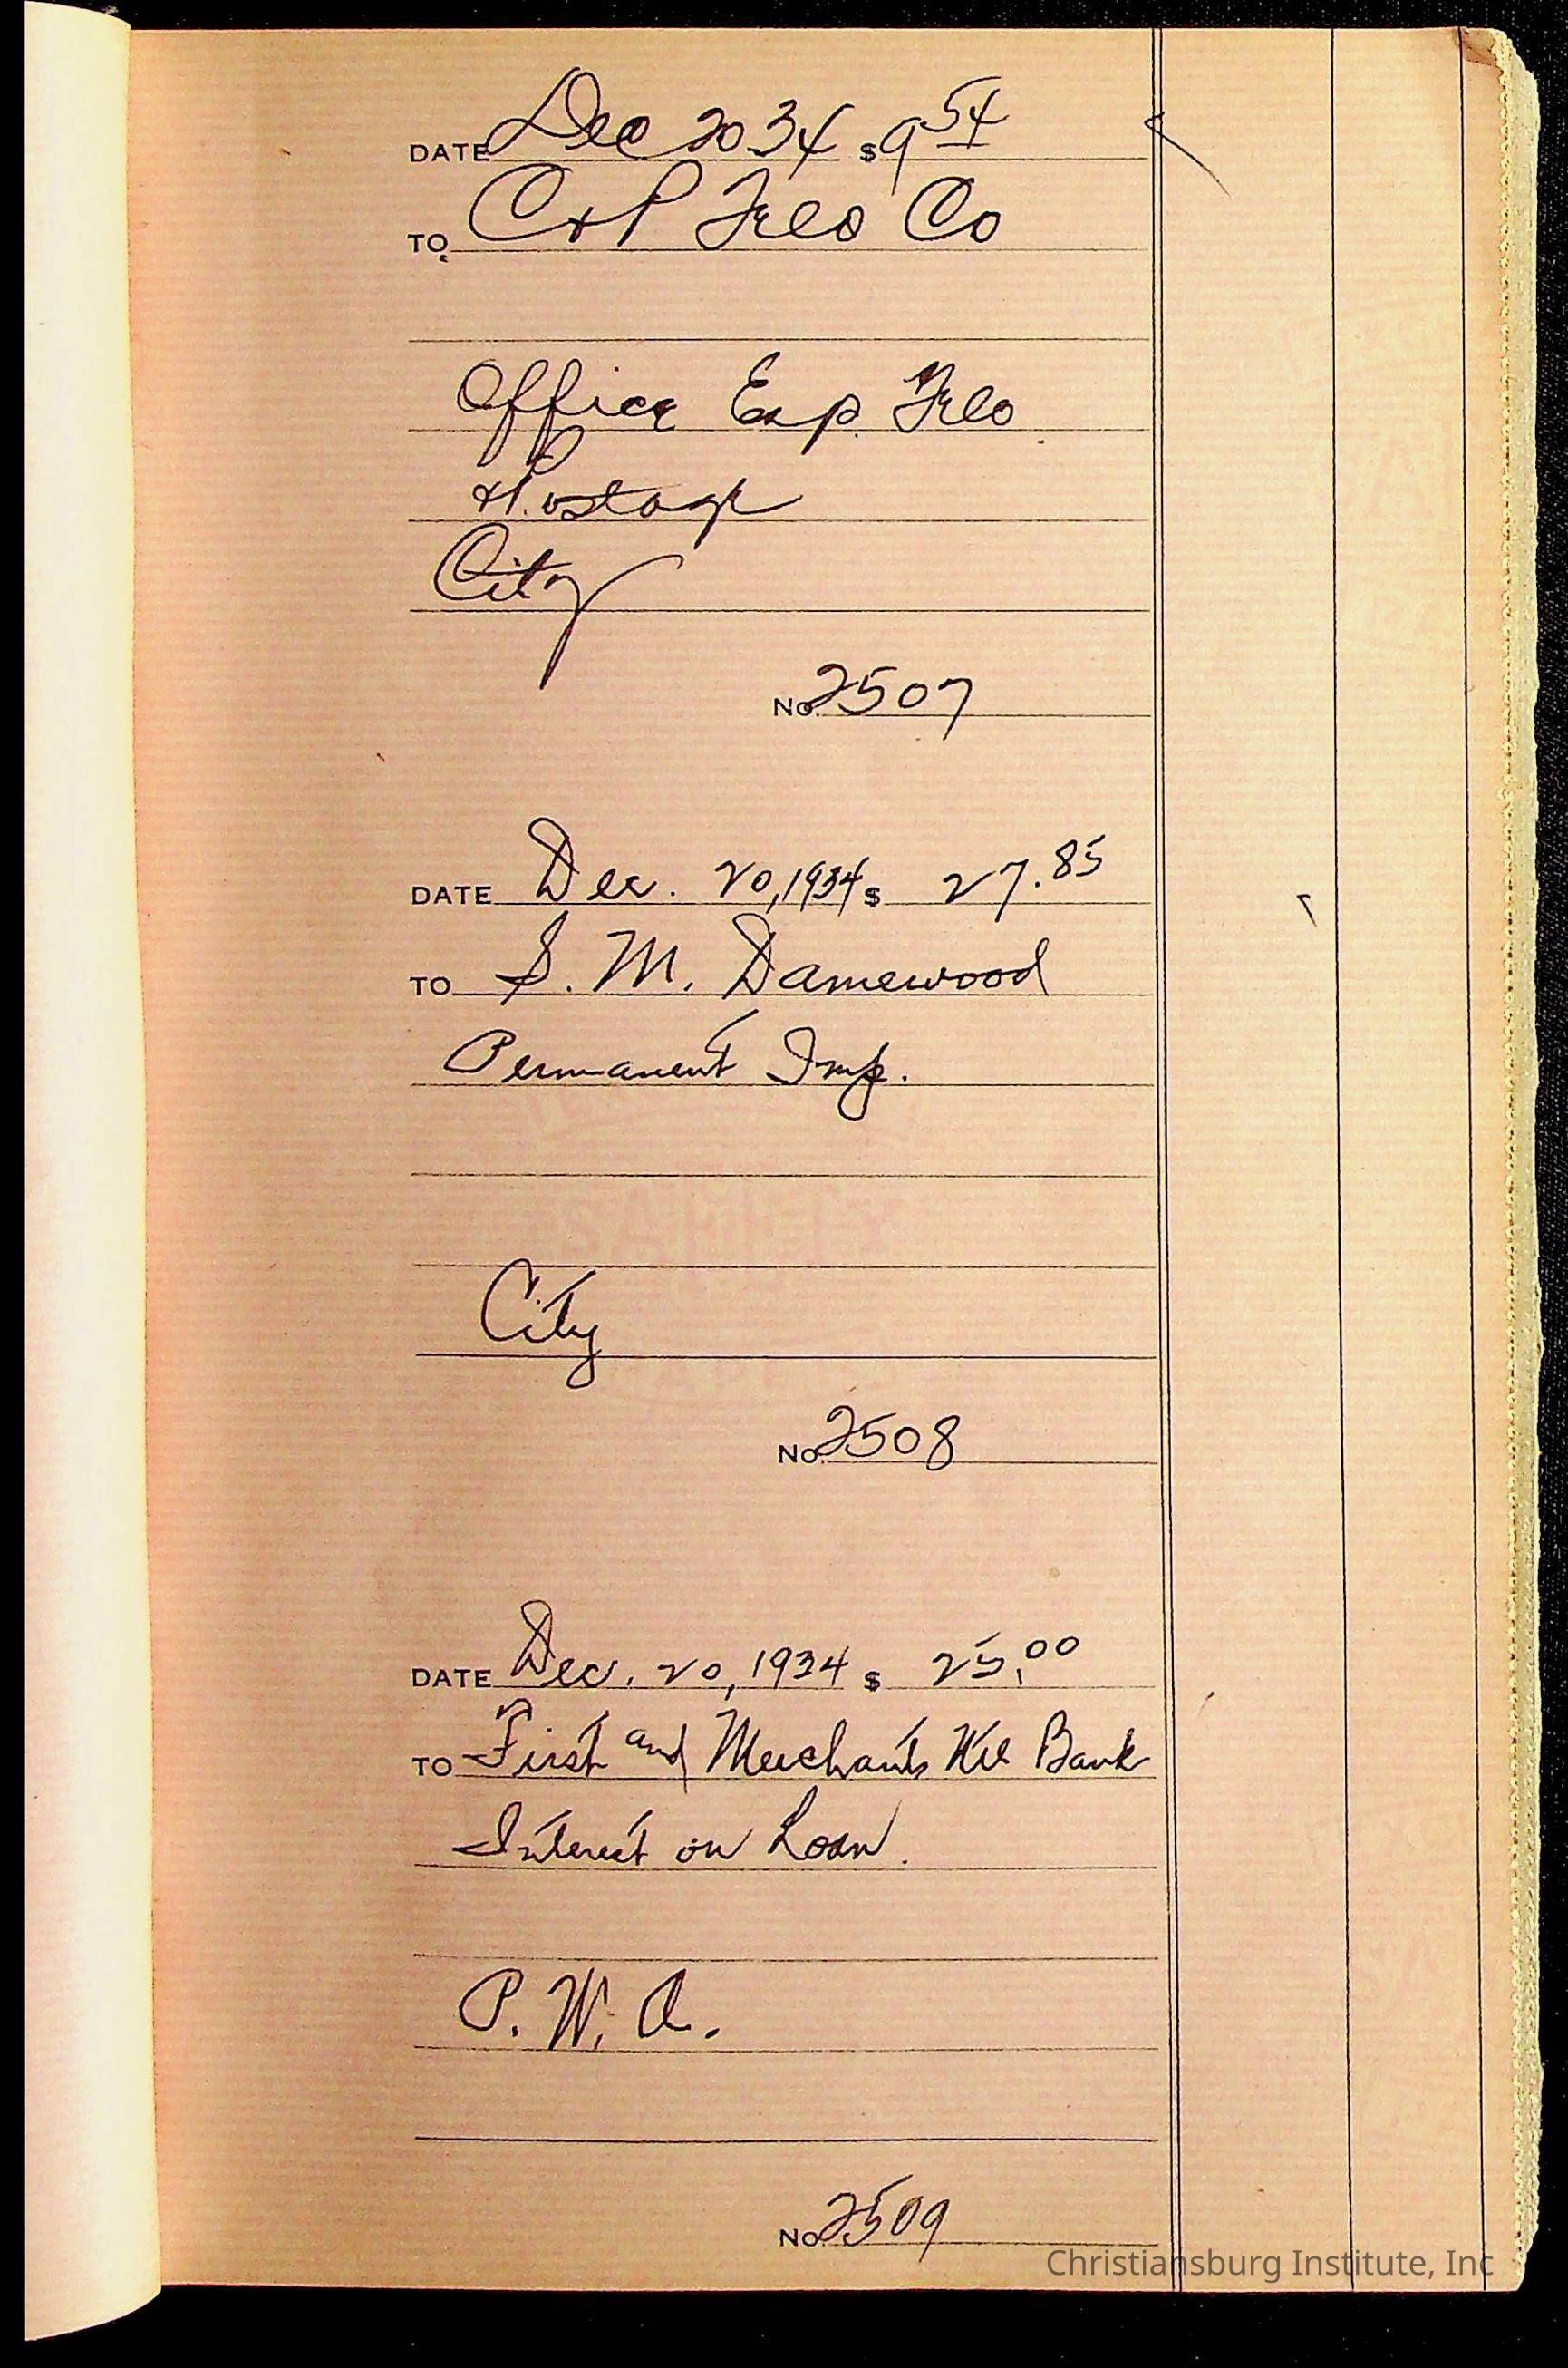 DATE Dec 20 34 $ 9 54
TO C & P Tele Co
Office Exp. Tele
& Postage
City
No. 2507
DATE Dec. 20, 1934 $ 27.85
TO S. M. Damewood
Permanent Imp.
City
No. 2508
DATE Dec. 20, 1934 $ 25.00
TO First and Merchants Bank
Interest on Loan.
P. W. A.
No. 2509
Christiansburg Institute, Inc